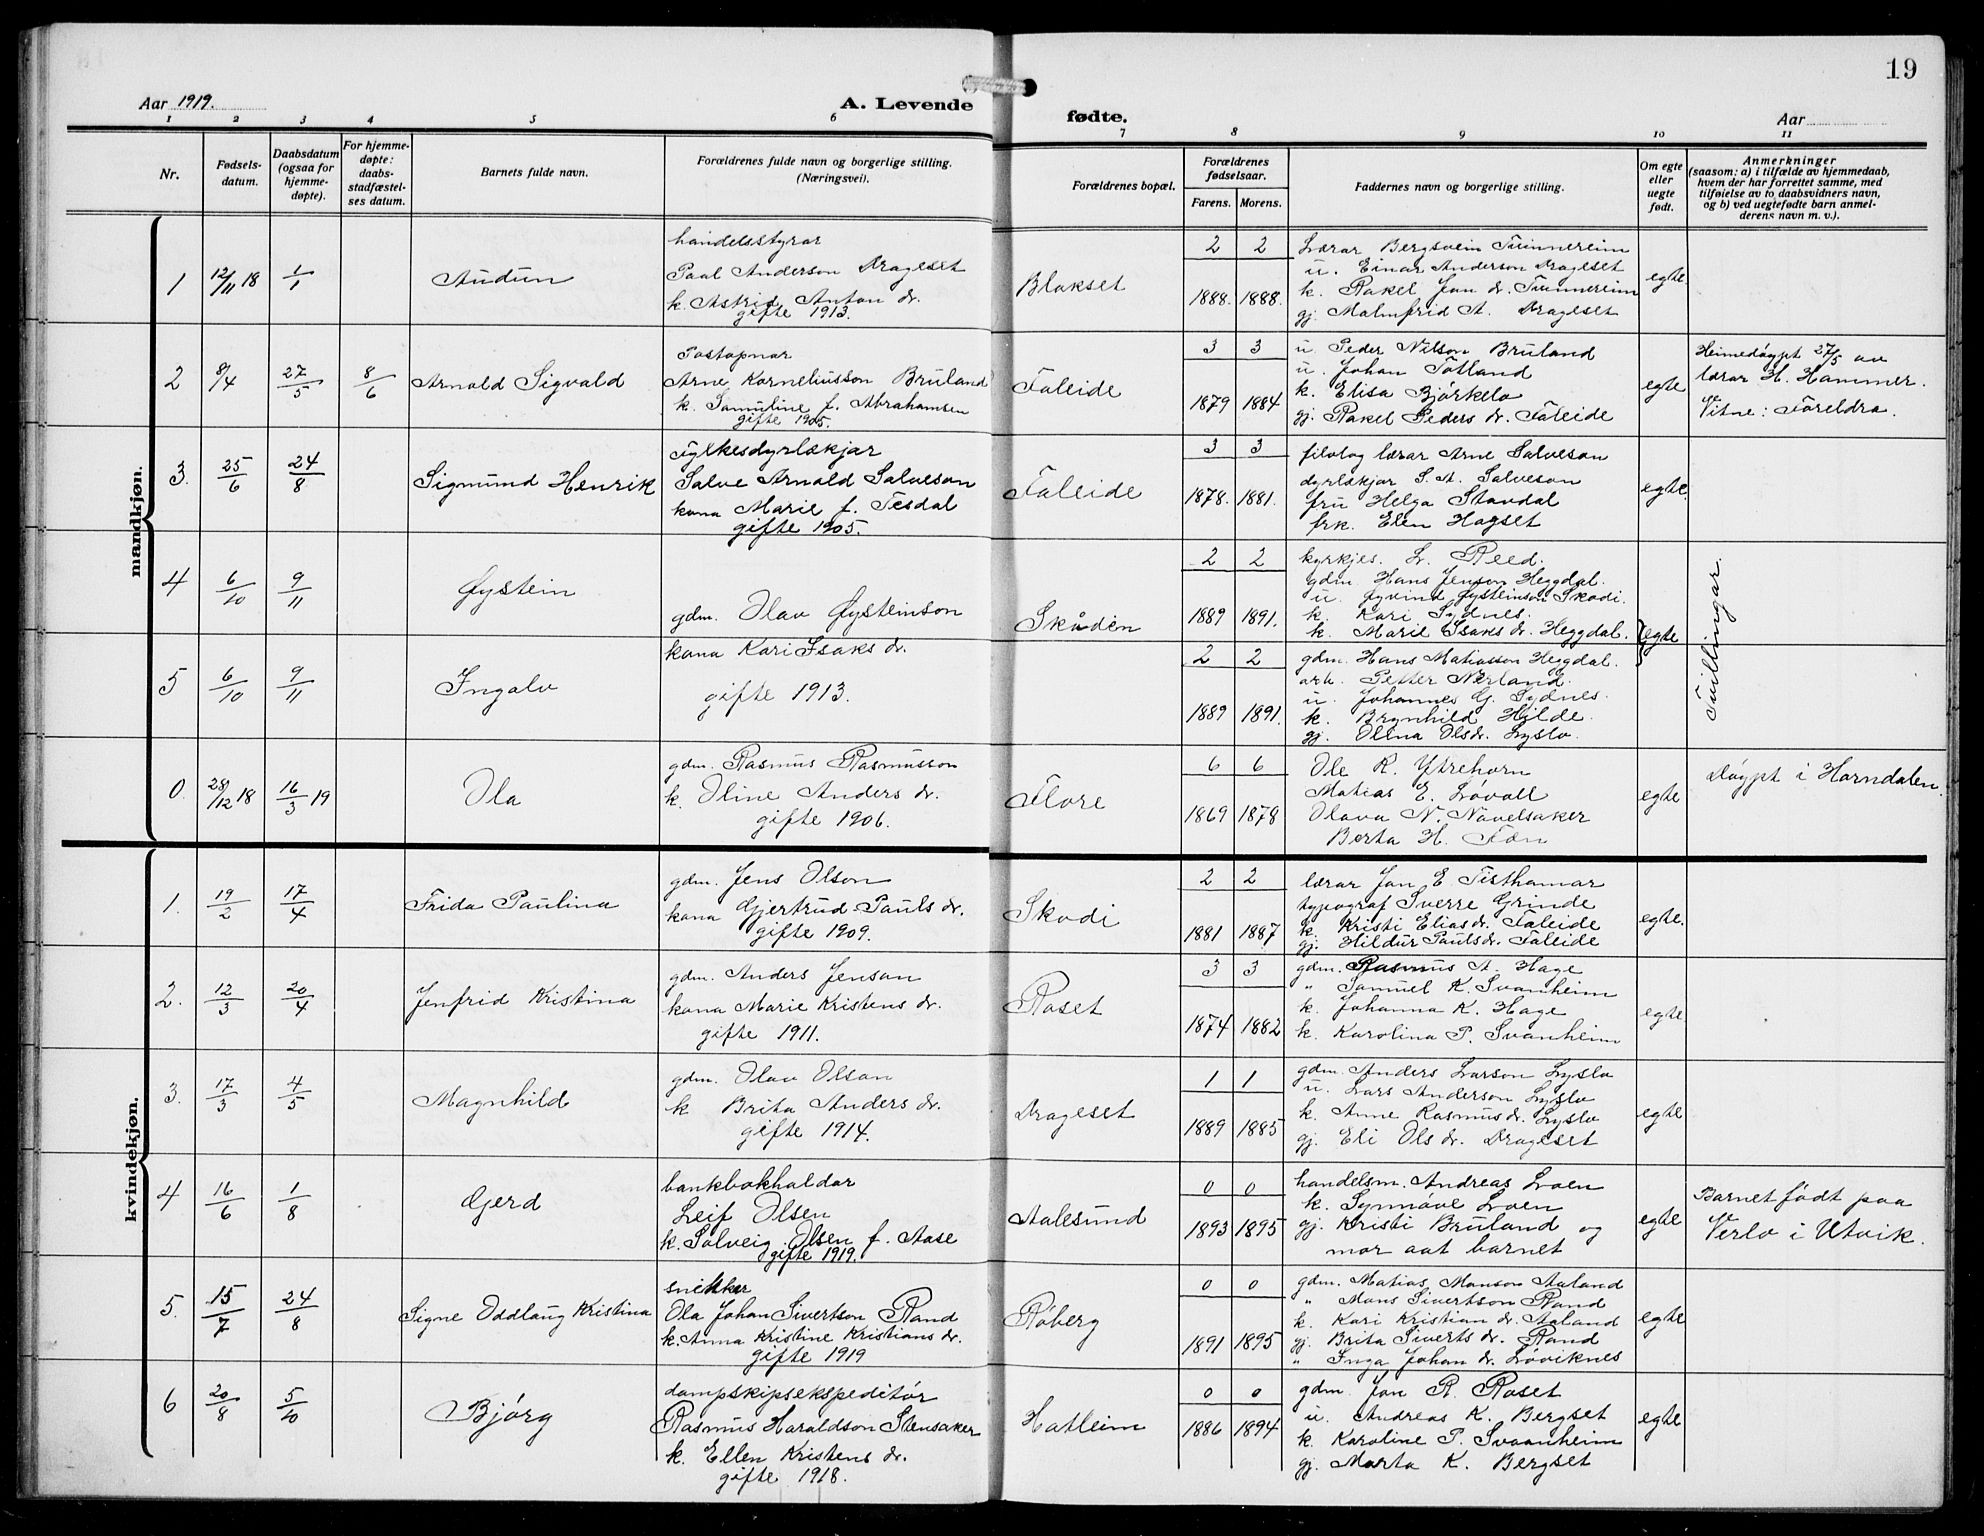 19
Aar 1919.
A. Levende fødte.
Aar
1 2 3 4 5 6 7 8 9 10 11
Nr.
Fødsels-
datum.
Daabsdatum
(ogsaa for
hjemme-
døpte).
For hjemme-
døpte:
daabs-
stadfæstel-
ses datum.
Barnets fulde navn.
Forældrenes fulde navn og borgerlige stilling.
(Næringsvei).
Forældrenes bopæl.
Forældrenes
fødselsaar.
Farens. Morens.
Faddernes navn og borgerlige stilling.
Om egte
eller
uegte
født.
Anmerkninger
(saasom: a) i tilfælde av hjemmedaab,
hvem der har forrettet samme, med
tilføielse av to daabsvidners navn,
og b) ved uegtefødte barn anmel-
derens navn m. v.).
mandkjøn.
1 12/11 18 1/1 Audun
handelsstyrar
Paal Anderson Drageset
k. Astrid Anton dr.
gifte 1913.
Blakset
2 2
1888. 1888.
Lærar Bergsvein Tunnereim
u. Einar Anderson Drageset
k. Rakel Jon dr. Tunnereim
gj. Malmfrid A. Drageset
egte.
2 8/4 27/5 8/6 Arnold Sigvald
Postopnar
Arne Korneliusson Bruland
k. Samuline f. Abrahamsen
gifte 1905.
Faleide
3 3
1879 1884
u. Peder Nilson Bruland
u. Johan Totland
k. Elisa Bjørkelo
gj. Rakel Peders dr. Faleide
egte
Heimedøypt 27/5 av
lærar H. Hammer.
Vitne: Foreldra.
3. 25/6 24/8 Sigmund Henrik
Fylkesdyrlækjar
Salve Arnold Salveson
kona Marie f. Tesdal
gifte 1905.
Faleide
3 3
1878. 1881.
filolog lærar Arne Salveson
dyrlækjar S. A. Salveson
fru Helga Stavdal
frk. Elen Hogset
egte.
4 6/10 9/11 Øystein
gdm. Olav Øysteinson
kona Kari Isaks dr.
gifte 1913.
Skåden
2 2
1889 1891.
kyrkjes. L. Reed.
gdm. Hans Jenson Heggdal.
u. Øyvind Øysteinson Skadi.
k. Kari Sydnes.
k. Marie Isaks dr. Heggdal.
egte
Tvillingar.
5 6/10 9/11 Ingolv
2 2
1889 1891.
gdm. Hans Matiasson Heggdal.
arb. Petter Nerland.
u. Johannes G. Sydnes.
k. Brynhild Hjelde.
gj. Olina Olsdr. Lyslo.
0. 28/12 18 16/3 19 Ola
gdm. Rasmus Rasmusson
k. Oline Anders dr.
gifte 1906.
Flore
6 6
1869 1878
Ole R. Ytrehorn
Matias E. Lovoll
Olava N. Navelsaker
Berta H. Fæn
egte
Døypt i Horndalen.
kvindekjøn.
1. 19/2 17/4 Frida Paulina
gdm. Jens Olson
kona Gjertrud Pauls dr.
gifte 1909.
Skadi
2 2
1881 1887
lærar Jon E. Tisthamar
typograf Sverre Grinde
k. Kristi Eliasdr. Faleide
gj. Hildur Paulsdr. Faleide
egte.
2. 12/3 20/4 Jenfrid Kristina
gdm. Anders Jenson
kona Marie Kristens dr.
gifte 1911.
Roset
3 3
1874 1882
gdm. Rasmus A. Hage
" Samuel K. Svanheim
k. Johanna K. Hage
k. Karolina P. Svanheim
egte.
3. 17/3 4/5 Magnhild
gdm. Olav Olson
k Brita Anders dr.
gifte 1914.
Drageset
1 1
1889 1885
gdm. Anders Larson Lyslo
u. Lars Anderson Lyslo
k. Anne Rasmusdr. Lyslo
gj. Eli Ols dr. Drageset
egte
4 16/6 1/8 Gerd
bankbokhaldar
Leif Olsen
k. Solveig Olsen f. Aase
gifte 1919.
Aalesund
0 0
1893 1895
handelsm. Andreas Loen
k. Synnøve Loen
gj. Kristi Bruland og
mor aat barnet
egte
Barnet født paa
Verlo i Utvik.
5. 15/7 24/8 Signe Oddlaug Kristina
snikkar
Ola Johan Sivertson Rand
k. Anna Kristine Kristians dr.
gifte 1919
Røberg
0 0
1891 1895
gdm. Matias Monson Aaland
" Mons Sivertson Rand
k. Kari Kristian dr. Aaland
gj. Brita Siverts dr. Rand
" Inga Johan dr. Loviknes
egte
6 20/8 5/10 Bjørg
dampskipsekspeditør
Rasmus Haraldson Stensaker
k. Ellen Kristens dr.
gifte 1918.
Hatleim
0 0
1886 1894
gdm. Jon R. Roset
u. Andreas K. Bergset
k. Karoline P. Svanheim
gj. Marta K. Bergset
egte